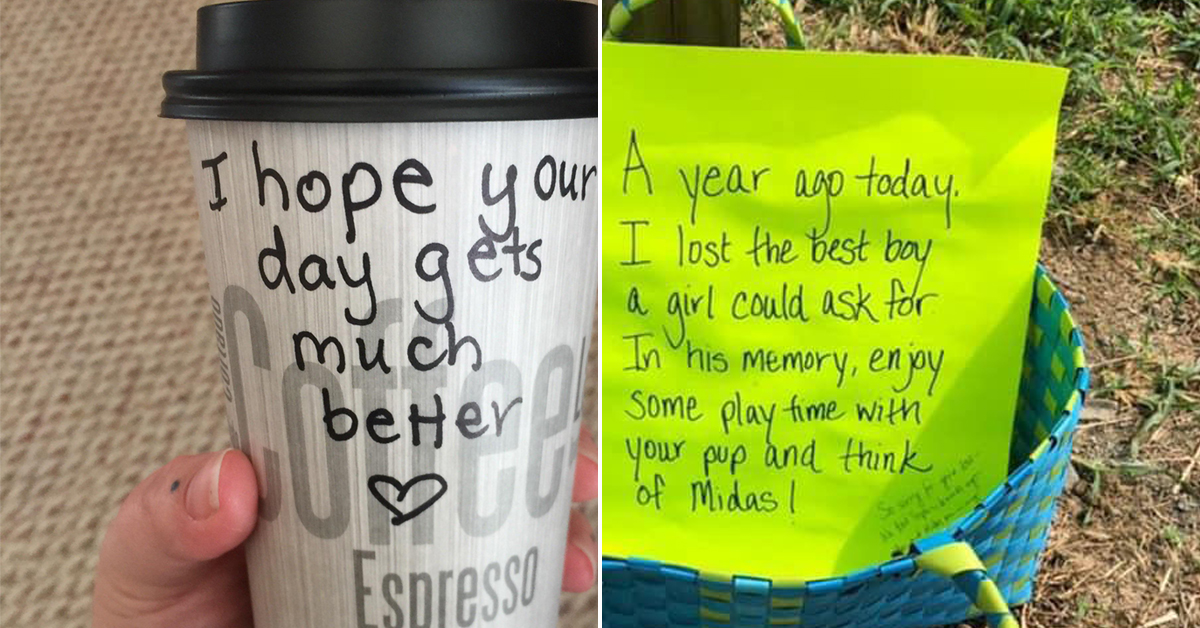 I hope your
day gets
much
better
Coffee
Espresso
A year ago today.
I lost the best boy
a girl could ask for
In his memory, enjoy
some play time with
your pup and think
of Midas!
So sorry for your